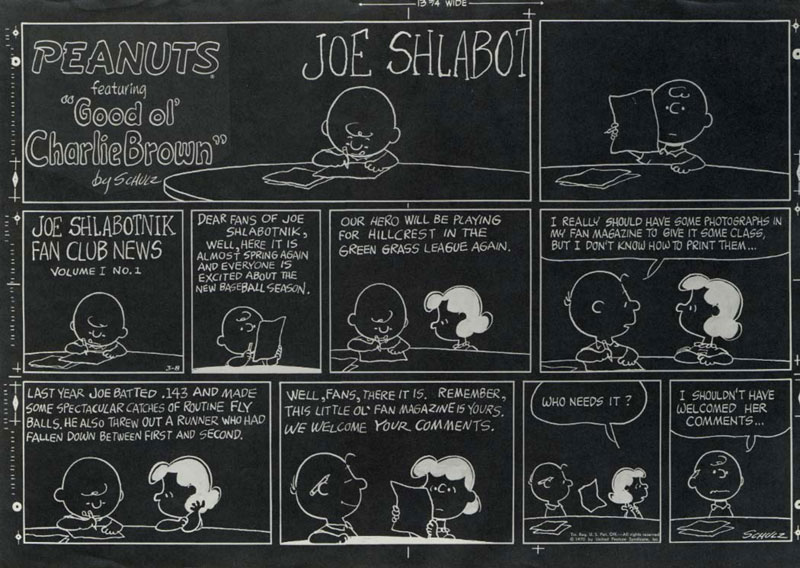 13 3/4 WIDE
PEANUTS
featuring
"Good ol'
Charlie Brown"
by SCHULZ
JOE SHLABOT
JOE SHLABOTNIK
FAN CLUB NEWS
VOLUME I NO. 1
3-8
DEAR FANS OF JOE
SHLABOTNIK,
WELL, HERE IT IS
ALMOST SPRING AGAIN
AND EVERYONE IS
EXCITED ABOUT THE
NEW BASEBALL SEASON.
OUR HERO WILL BE PLAYING
FOR HILLCREST IN THE
GREEN GRASS LEAGUE AGAIN.
I REALLY SHOULD HAVE SOME PHOTOGRAPHS IN
MY FAN MAGAZINE TO GIVE IT SOME CLASS,
BUT I DON'T KNOW HOW TO PRINT THEM...
LAST YEAR JOE BATTED .143 AND MADE
SOME SPECTACULAR CATCHES OF ROUTINE FLY
BALLS. HE ALSO THREW OUT A RUNNER WHO HAD
FALLEN DOWN BETWEEN FIRST AND SECOND.
WELL, FANS, THERE IT IS. REMEMBER,
THIS LITTLE OL' FAN MAGAZINE IS YOURS.
WE WELCOME YOUR COMMENTS.
WHO NEEDS IT?
Tm. Reg. U. S. Pat. Off.—All rights reserved
© 1970 by United Feature Syndicate, Inc.
I SHOULDN'T HAVE
WELCOMED HER
COMMENTS...
SCHULZ